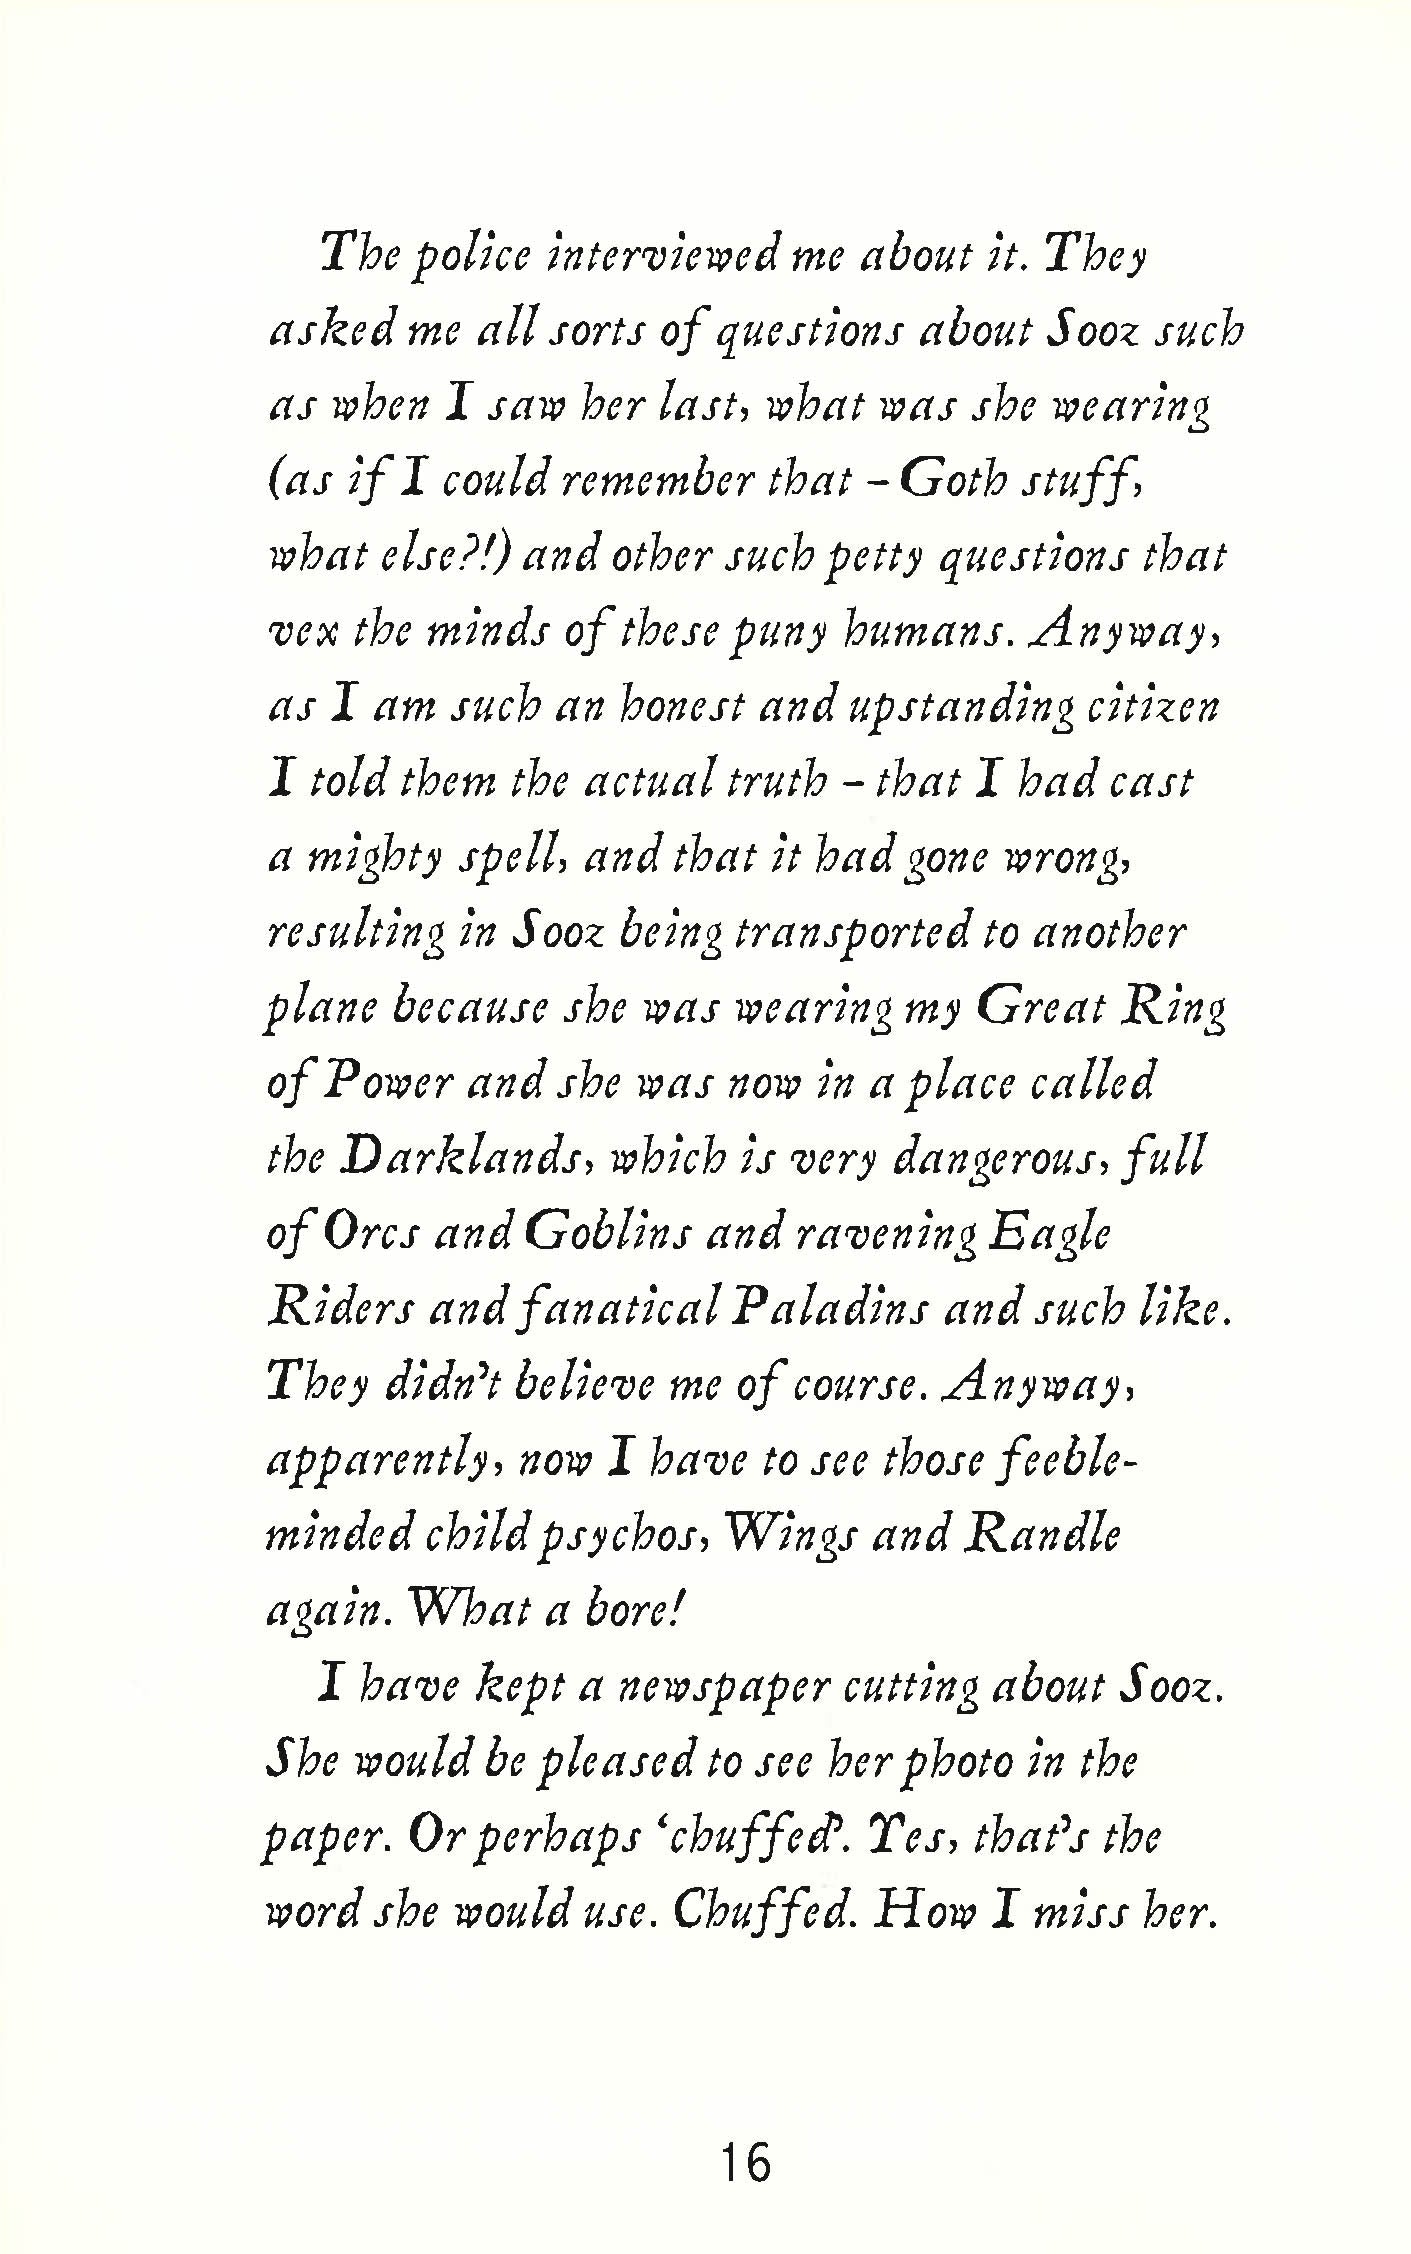 The police interviewed me about it. They
asked me all sorts of questions about Sooz such
as when I saw her last, what was she wearing
(as if I could remember that – Goth stuff,
what else?!) and other such petty questions that
vex the minds of these puny humans. Anyway,
as I am such an honest and upstanding citizen
I told them the actual truth – that I had cast
a mighty spell, and that it had gone wrong,
resulting in Sooz being transported to another
plane because she was wearing my Great Ring
of Power and she was now in a place called
the Darklands, which is very dangerous, full
of Orcs and Goblins and ravening Eagle
Riders and fanatical Paladins and such like.
They didn't believe me of course. Anyway,
apparently, now I have to see those feeble-
minded child psychos, Wings and Randle
again. What a bore!
I have kept a newspaper cutting about Sooz.
She would be pleased to see her photo in the
paper. Or perhaps 'chuffed'. Yes, that's the
word she would use. Chuffed. How I miss her.
16